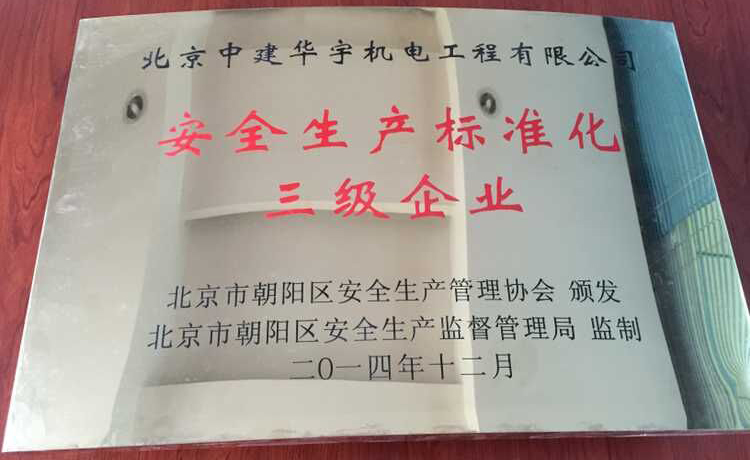 北京中建华宇机电工程有限公司
安全生产标准化
三级企业
北京市朝阳区安全生产管理协会 颁发
北京市朝阳区安全生产监督管理局 监制
二〇一四年十二月